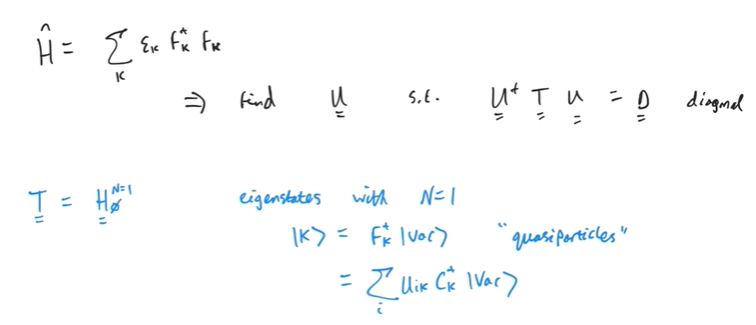 Ĥ = ∑_K ε_K F_K^† F_K
⇒ find U s.t. U^† T U = D diagonal
T = H_∅^{N=1} eigenstates with N=1
|K⟩ = F_K^† |Vac⟩ "quasiparticles"
= ∑_i U_{iK} C_K^† |Vac⟩